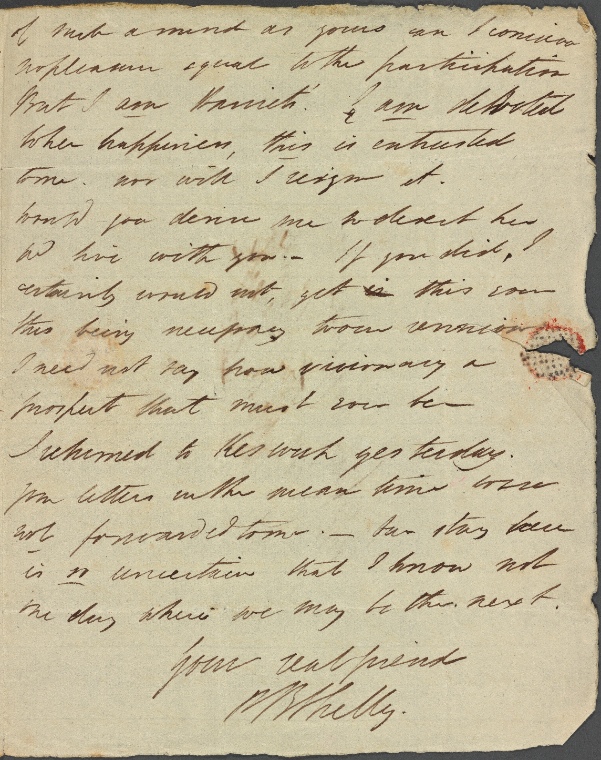 of such a mind as yours can I conceive
no pleasure equal to the participation
But I am Harriets'. I am devoted
to her happiness, this is entrusted
to me. nor will I resign it.
Would you desire me to desert her
and live with you.— If you did, I
certainly would not, yet is this even
this being necessary to our reunion
I need not say how visionary a
prospect that must ever be—
I returned to Keswick yesterday.
your letters in the mean time were
not forwarded to me.— Our stay here
is so uncertain that I know not
one day where we may be the next.
Your real friend
PBShelley.